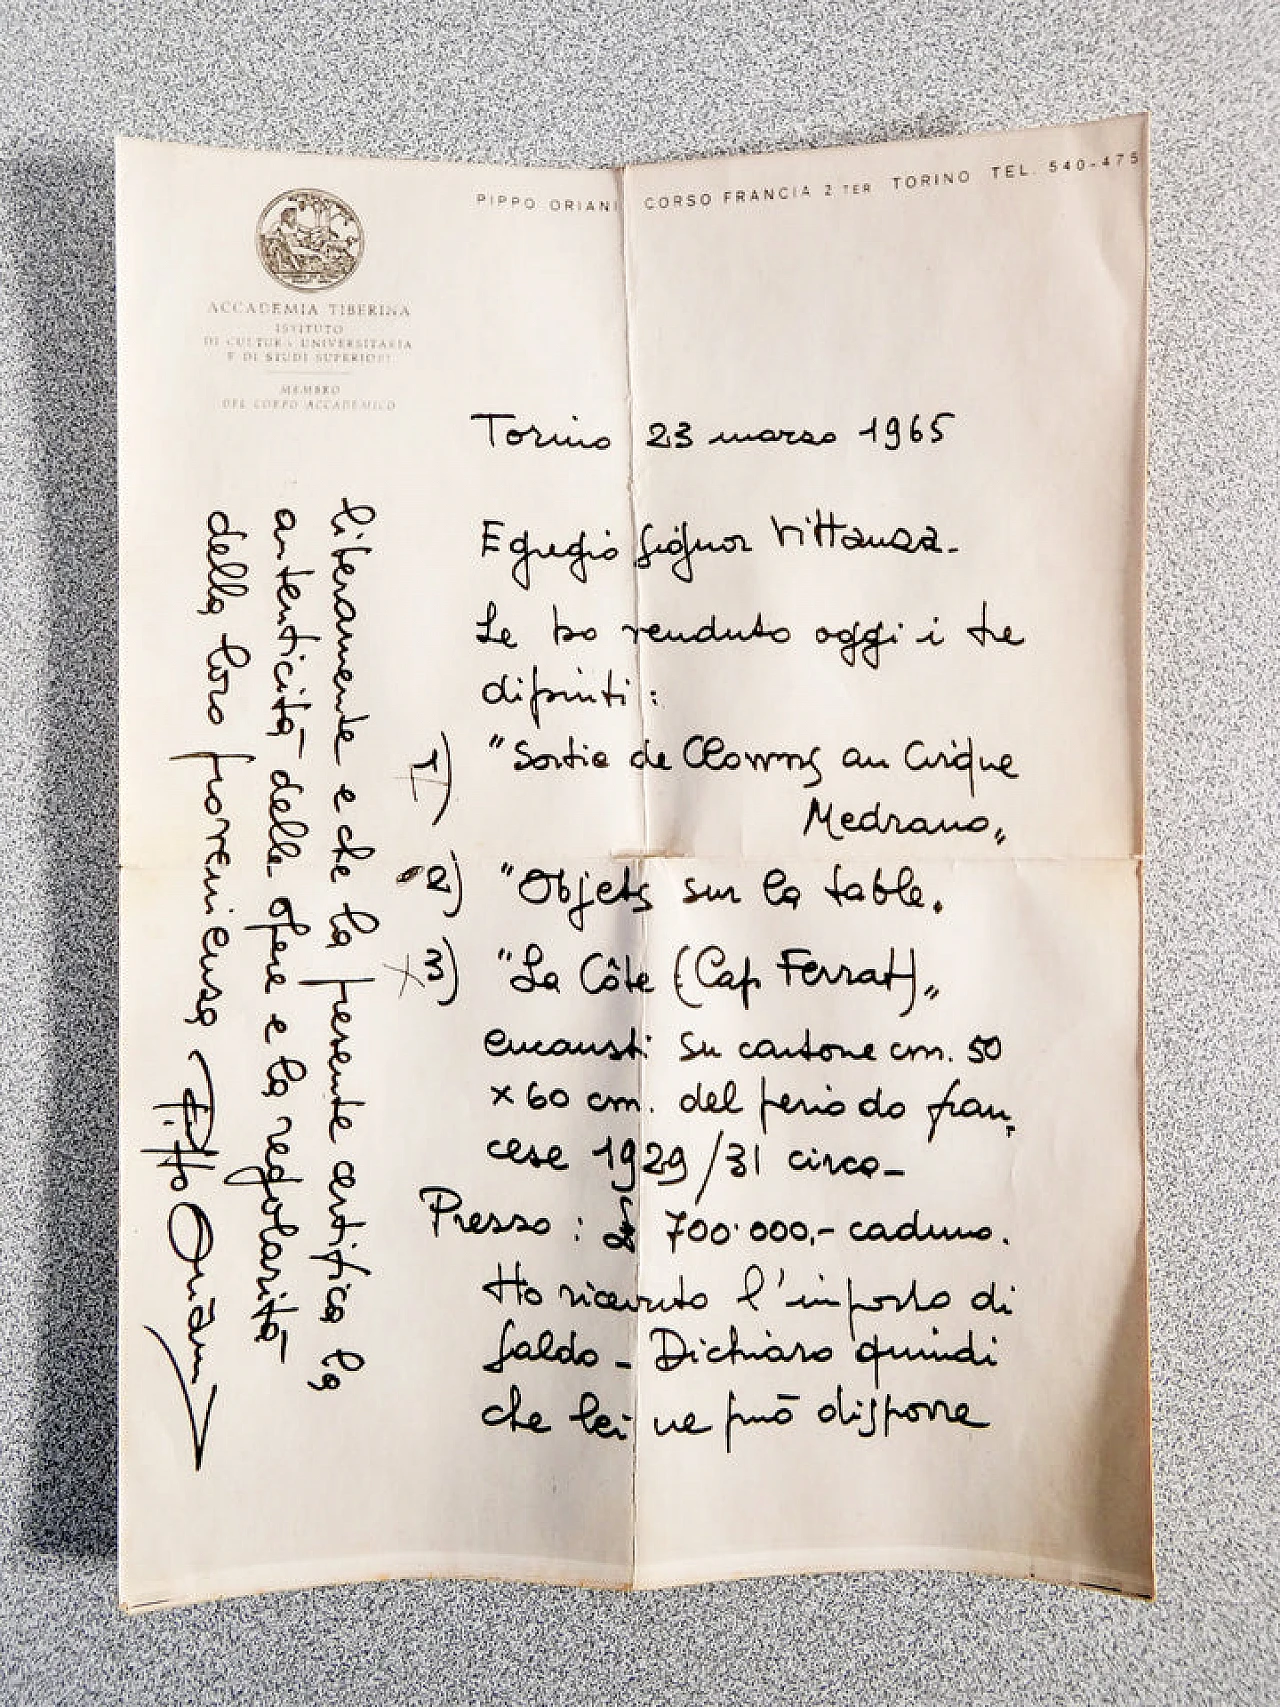 PIPPO ORIANI CORSO FRANCIA 2 TER TORINO TEL. 540-475
ACCADEMIA TIBERINA
ISTITUTO
DI CULTURA UNIVERSITARIA
E DI STUDI SUPERIORI
MEMBRO
DEL CORPO ACCADEMICO
Torino 23 marzo 1965
Egregio Signor Vittanza-
Le ho venduto oggi i tre
dipinti:
1) "Sortie de Clowns au Cirque
Medrano„
2) "Objets sur la table.
3) "La Côte (Cap Ferrat)„
encausti su cartone cm. 50
x 60 cm. del periodo fran,
cese 1929/31 circa-
Prezzo: £ 700.000,- caduno.
Ho ricevuto l'importo di
saldo - Dichiaro quindi
che lei ne può disporre
liberamente e che la presente certifica la
autenticità delle opere e la regolarità
della loro provenienza
Pippo Oriani